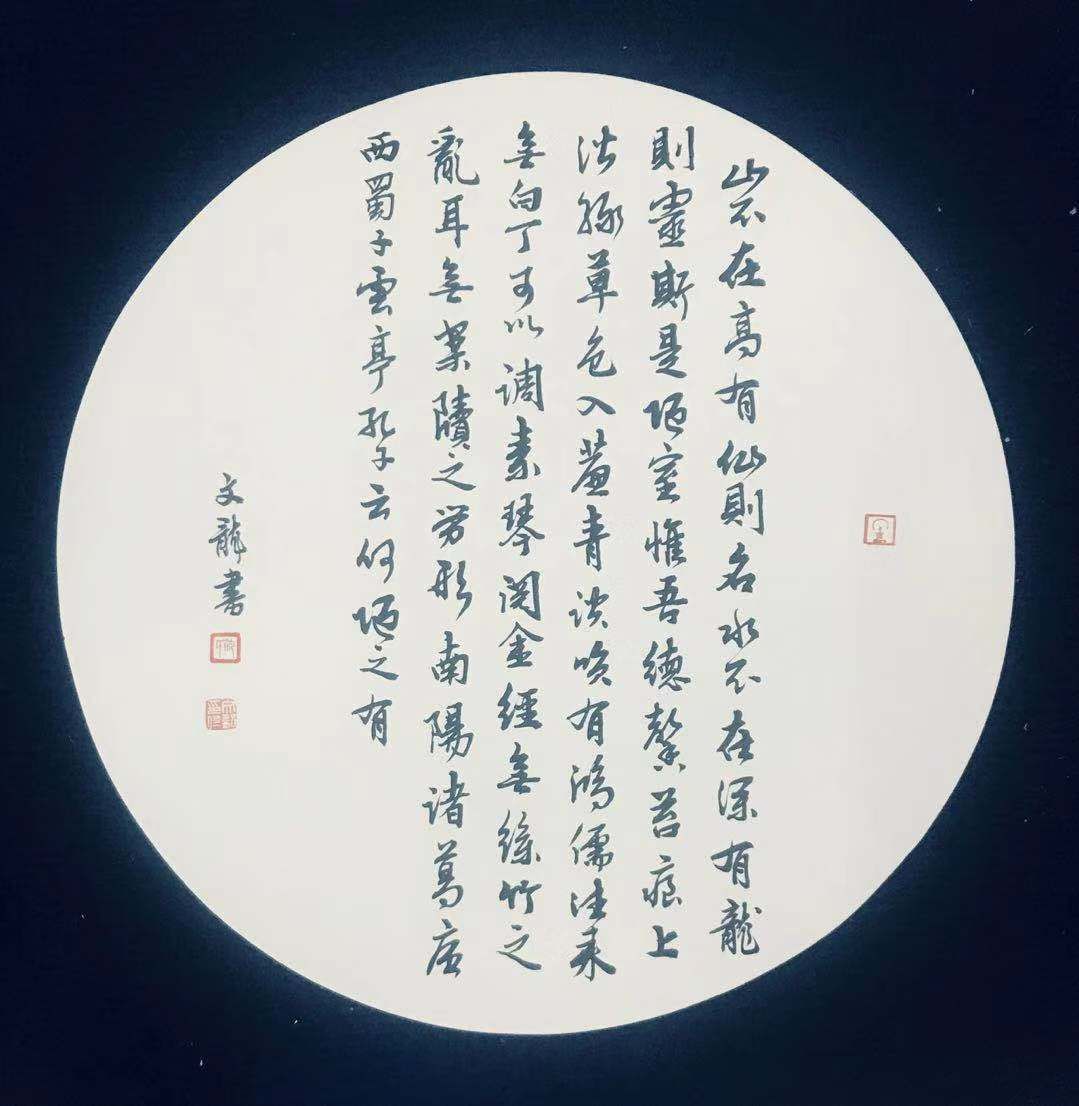 山不在高有仙則名水不在深有龍
則靈斯是陋室惟吾德馨苔痕上
階綠草色入簾青談笑有鴻儒往來
無白丁可以調素琴閱金經無絲竹之
亂耳無案牘之勞形南陽諸葛廬
西蜀子雲亭孔子云何陋之有
文龍書